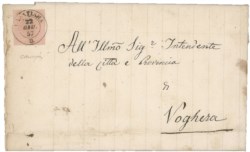 All' Illmo Sigr Intendente
della Città e Provincia
di
Voghera